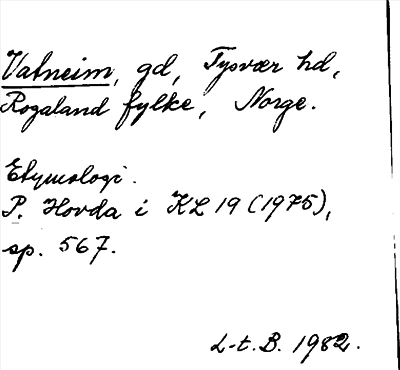 Vatneim, gd, Tysvær hd,
Rogaland fylke, Norge.
Etymologi.
P. Hovda i KL 19 (1975),
sp. 567.
L-t. B. 1982.